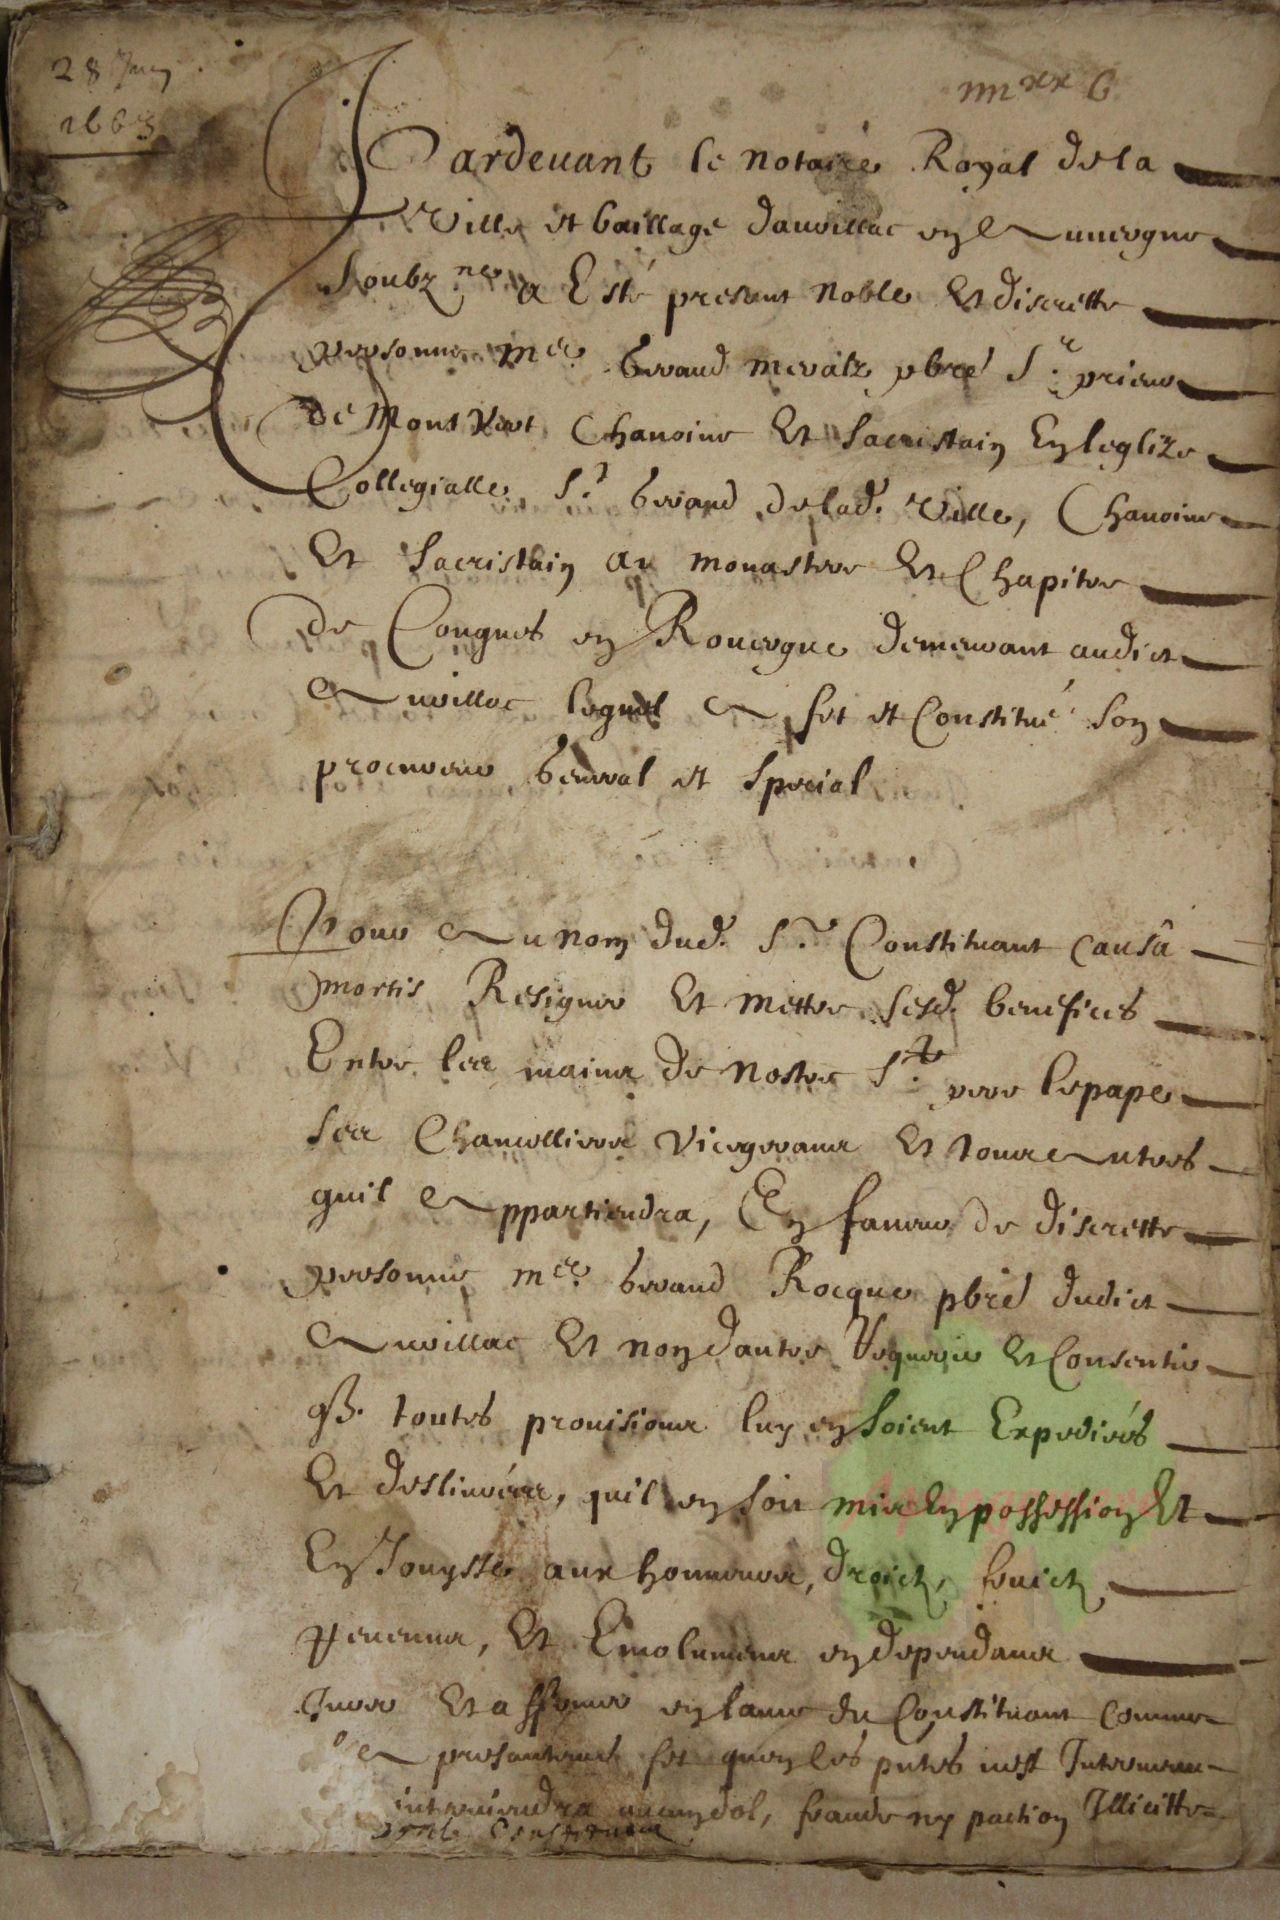 28 Juin
1663
Pardeuant le notaire Royal de la
Ville et bailliage daurillac en Auuergne
Soubz.ne a Esté present noble Et discrette
personne Mre. Geraud meralz pbre Sr. prieur
de Montvert Chanoine Et Sacristain En leglize
Collegialle St. Geraud de lad. Ville, Chanoine
Et Sacristain au monastere Et Chapitre
de Conques en Rouergue demeurant audict
Aurillac lequel a fet et Constitué son
procureur General et Special
Pour Au nom dud. Sr. Constituant causâ
mortis Resigner Et mettre sesd. benefices
Entre les mains de nostre St. pere le pape
ses Chancelliers Vicegerans Et tous Autres
quil Appartiendra, En faueur de discrette
personne Mre. Geraud Rocque pbre dudict
Aurillac Et non dautre Requerir Et Consentir
q. toutes prouisions luy en soient Expediées
Et desliurées, quil en soit mis En possession Et
En Jouysse aux honneurs, droictz, fruictz,
reuenus, Et Emolumens en dependans
Jurer Et affirmer en lame du Constituant comme
a presentement fet quen les pntes nest Interuenu
interuiendra aucun dol, fraude ny paction Illicitte